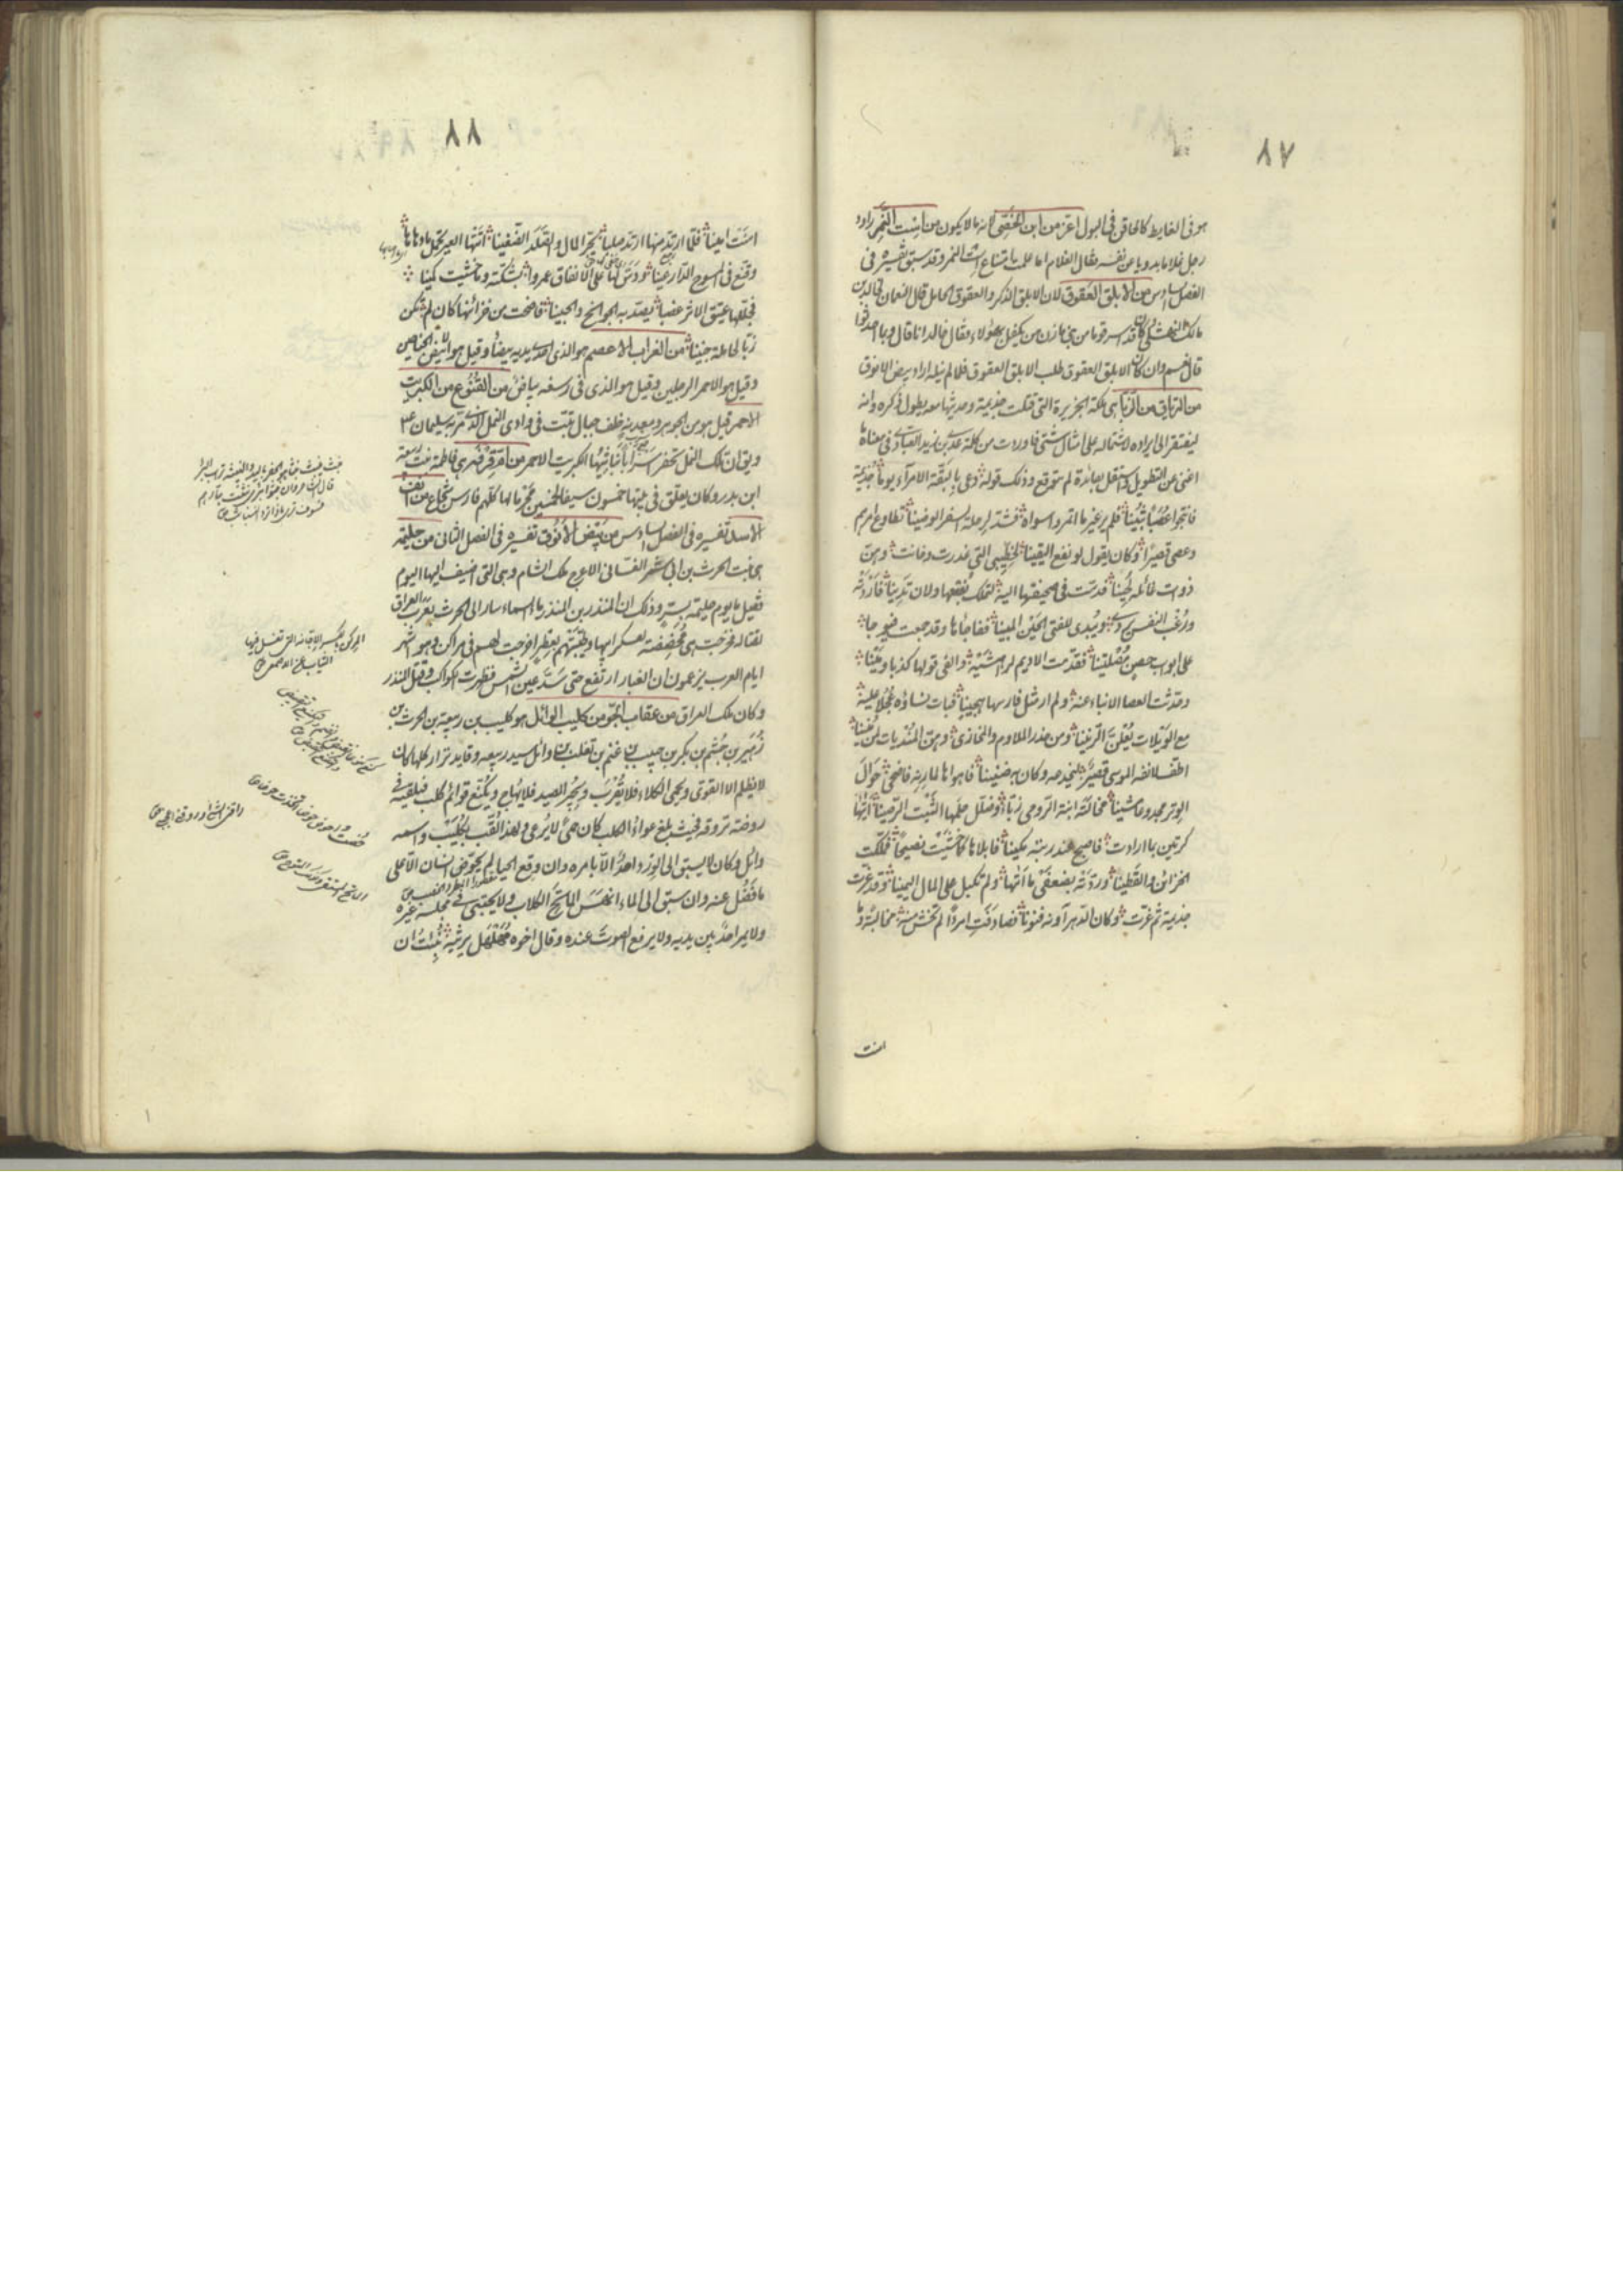 ٨٧
هو في الغايط كالحاقن في البول اعز من ابن الخصي لانه مما لا يكون من است النمر راود
رجل غلاما بدويا عن نفسه فقال الغلام اما علمت امتناع است النمر وقد سبق تفسيره في
الفصل السادس من الابلق العقوق لان الابلق الذكر والعقوق الحامل قال النعمان
مالك النهشلي كان قد اسر قوما من بني مازن من يكفل بهؤلاء فقال خالد انا قال وبما احدثوا
قال نعم وان كان الابلق العقوق طلب الابلق العقوق فلما لم ينله اراد بيض الانوق
من الزباء هي ملكة الجزيرة التي قتلت جذيمة وحديثها معه يطول ذكره وانه
ليفتقر الى ايراده اشتماله على امثال شتى فاوردت من كلمة عدي بن زيد العبادي في معناه ما
اغنى عن التطويل واستقل بفائدة لم تتوقع وذلك قوله دعى بالبقة الامراء يوما جذيمة
فانتجوا عصبا ثبينا فلم ير غير ما ائتمروا سواه فشد لرحلة السفر الوضينا فطاوع امرهم
وعصى قصيرا وكان يقول لو نفع اليقينا لخطبته التي غدرت وخانت وهن
ذوات غائلة لحينا فدست في صحيفتها اليه لتملك بضعها ولان تدينا فاردته
ورغب النفس يردى ويبدى للفتى الحين المبينا ففاجأها وقد جمعت فيوجا
على ابواب حصن مصلتينا فقدمت الاديم لراهشيه والفى قولها كذبا ومينا
وحدثت العصا الانباء عنه ولم ار مثل فارسها هجينا فبات نساؤه عجلا عليه
مع الويلات يعلن الرنينا ومن حذر الملاوم والمخازي وهن المنديات لمن منينا
اطف لانفه الموسى قصير ليجدعه وكان به ضنينا فاهواها لمارنه فاضحى طوال
الوتر مجدوعا مشينا فخالته ابنة الرومي زباء وضلل حلمها الثبت الرصينا اتيها
كرتين بما ارادت فاصبح عند ربته مكينا فابلاها كما خشيت نصيحا فملكت
الخزائن والقطينا وردته بضعفي ما اتيها ولم تكبل على المال اليمينا وقد غرت
جذيمة ثم غرت وكان الدهر آونة فنونا فصادفت امرءا لم تخش منه مخالبة وما
امنت
٨٨
امنت امينا فلما ارتد منها ارتد صلبا يجر المال والصدر الضغينا اتتها العير تحمل ما دهاها
وقنع في المسوح الدارعينا ودس لها على الانفاق عمروا بشكته وما خشيت كمينا
فجللها عتيق الاثر عضبا يصد به الجوانح والجبينا فاضحت من خزائنها كان لم تكن
زبا لحاملة جنينا من الغراب الاعصم هو الذي احدى يديه بيضاء وقيل هو الابيض الجناحين
وقيل هو الاحمر الرجلين وقيل هو الذي في رسغه بياض من القنوع من الكبريت
الاحمر قيل هو من الجوهر ومعدنه خلف جبال تبت في وادي النمل الذي مر به سليمان ع م
ويق ان تلك النمل تحفر اسرابا ثباتيها الكبريت الاحمر من ام قرفة هي فاطمة بنت ربيعة
ابن بدر وكان يعلق في بيتها خمسون سيفا لخمسين محرما لها كلهم فارس شجاع من انف
الاسد تفسيره في الفصل السادس من بيض الانوق تفسيره في الفصل الثاني من حليمة
هي بنت الحرث بن ابي شمر الغساني الاعرج ملك الشام وهي التي اضيف اليها اليوم
فقيل ما يوم حليمة بسر وذلك ان المنذر بن المنذر ماء السماء سار الى الحرث بعرب العراق
لقتاله فخرجت هي محضضة لعسكر ابيها وطيبتهم بعطر اخرجت لهم في مراكن وهو اشهر
ايام العرب يزعمون ان الغبار ارتفع حتى سد عين الشمس فظهرت الكواكب وقتل المنذر
وكان ملك العراق من عقاب الجو من كليب الوائل هو كليب بن ربيعة بن الحرث بن
زهير بن جشم بن بكر بن حبيب بن غنم بن تغلب بن وائل سيد ربيعة وقايد نزار كلها كان
لا يظلم الا القوى ويحمى الكلاء فلا تقرب ويجير الصيد فلا يهاج ويكنع قوائم كلب فيلقيه في
روضة تروقه فحيث بلغ عواء الكلب كان حمى لا يرعى ولهذا لقب بكليب واسمه
وائل وكان لا يسبق الى الورد احد الا بامره وان وقع الحيا لم يحوض انسان الا على
ما فضل عنه وان سبق الى الماء انهس الكلاب ولا يحتبى في مجلسه غيره
ولا يمر احد بين يديه ولا يرفع الصوت عنده وقال اخوه مهلهل يرثيه نبئت ان
المركن بالكسر الاجانة التي تغسل فيها
الثياب عن الاصمعي ص